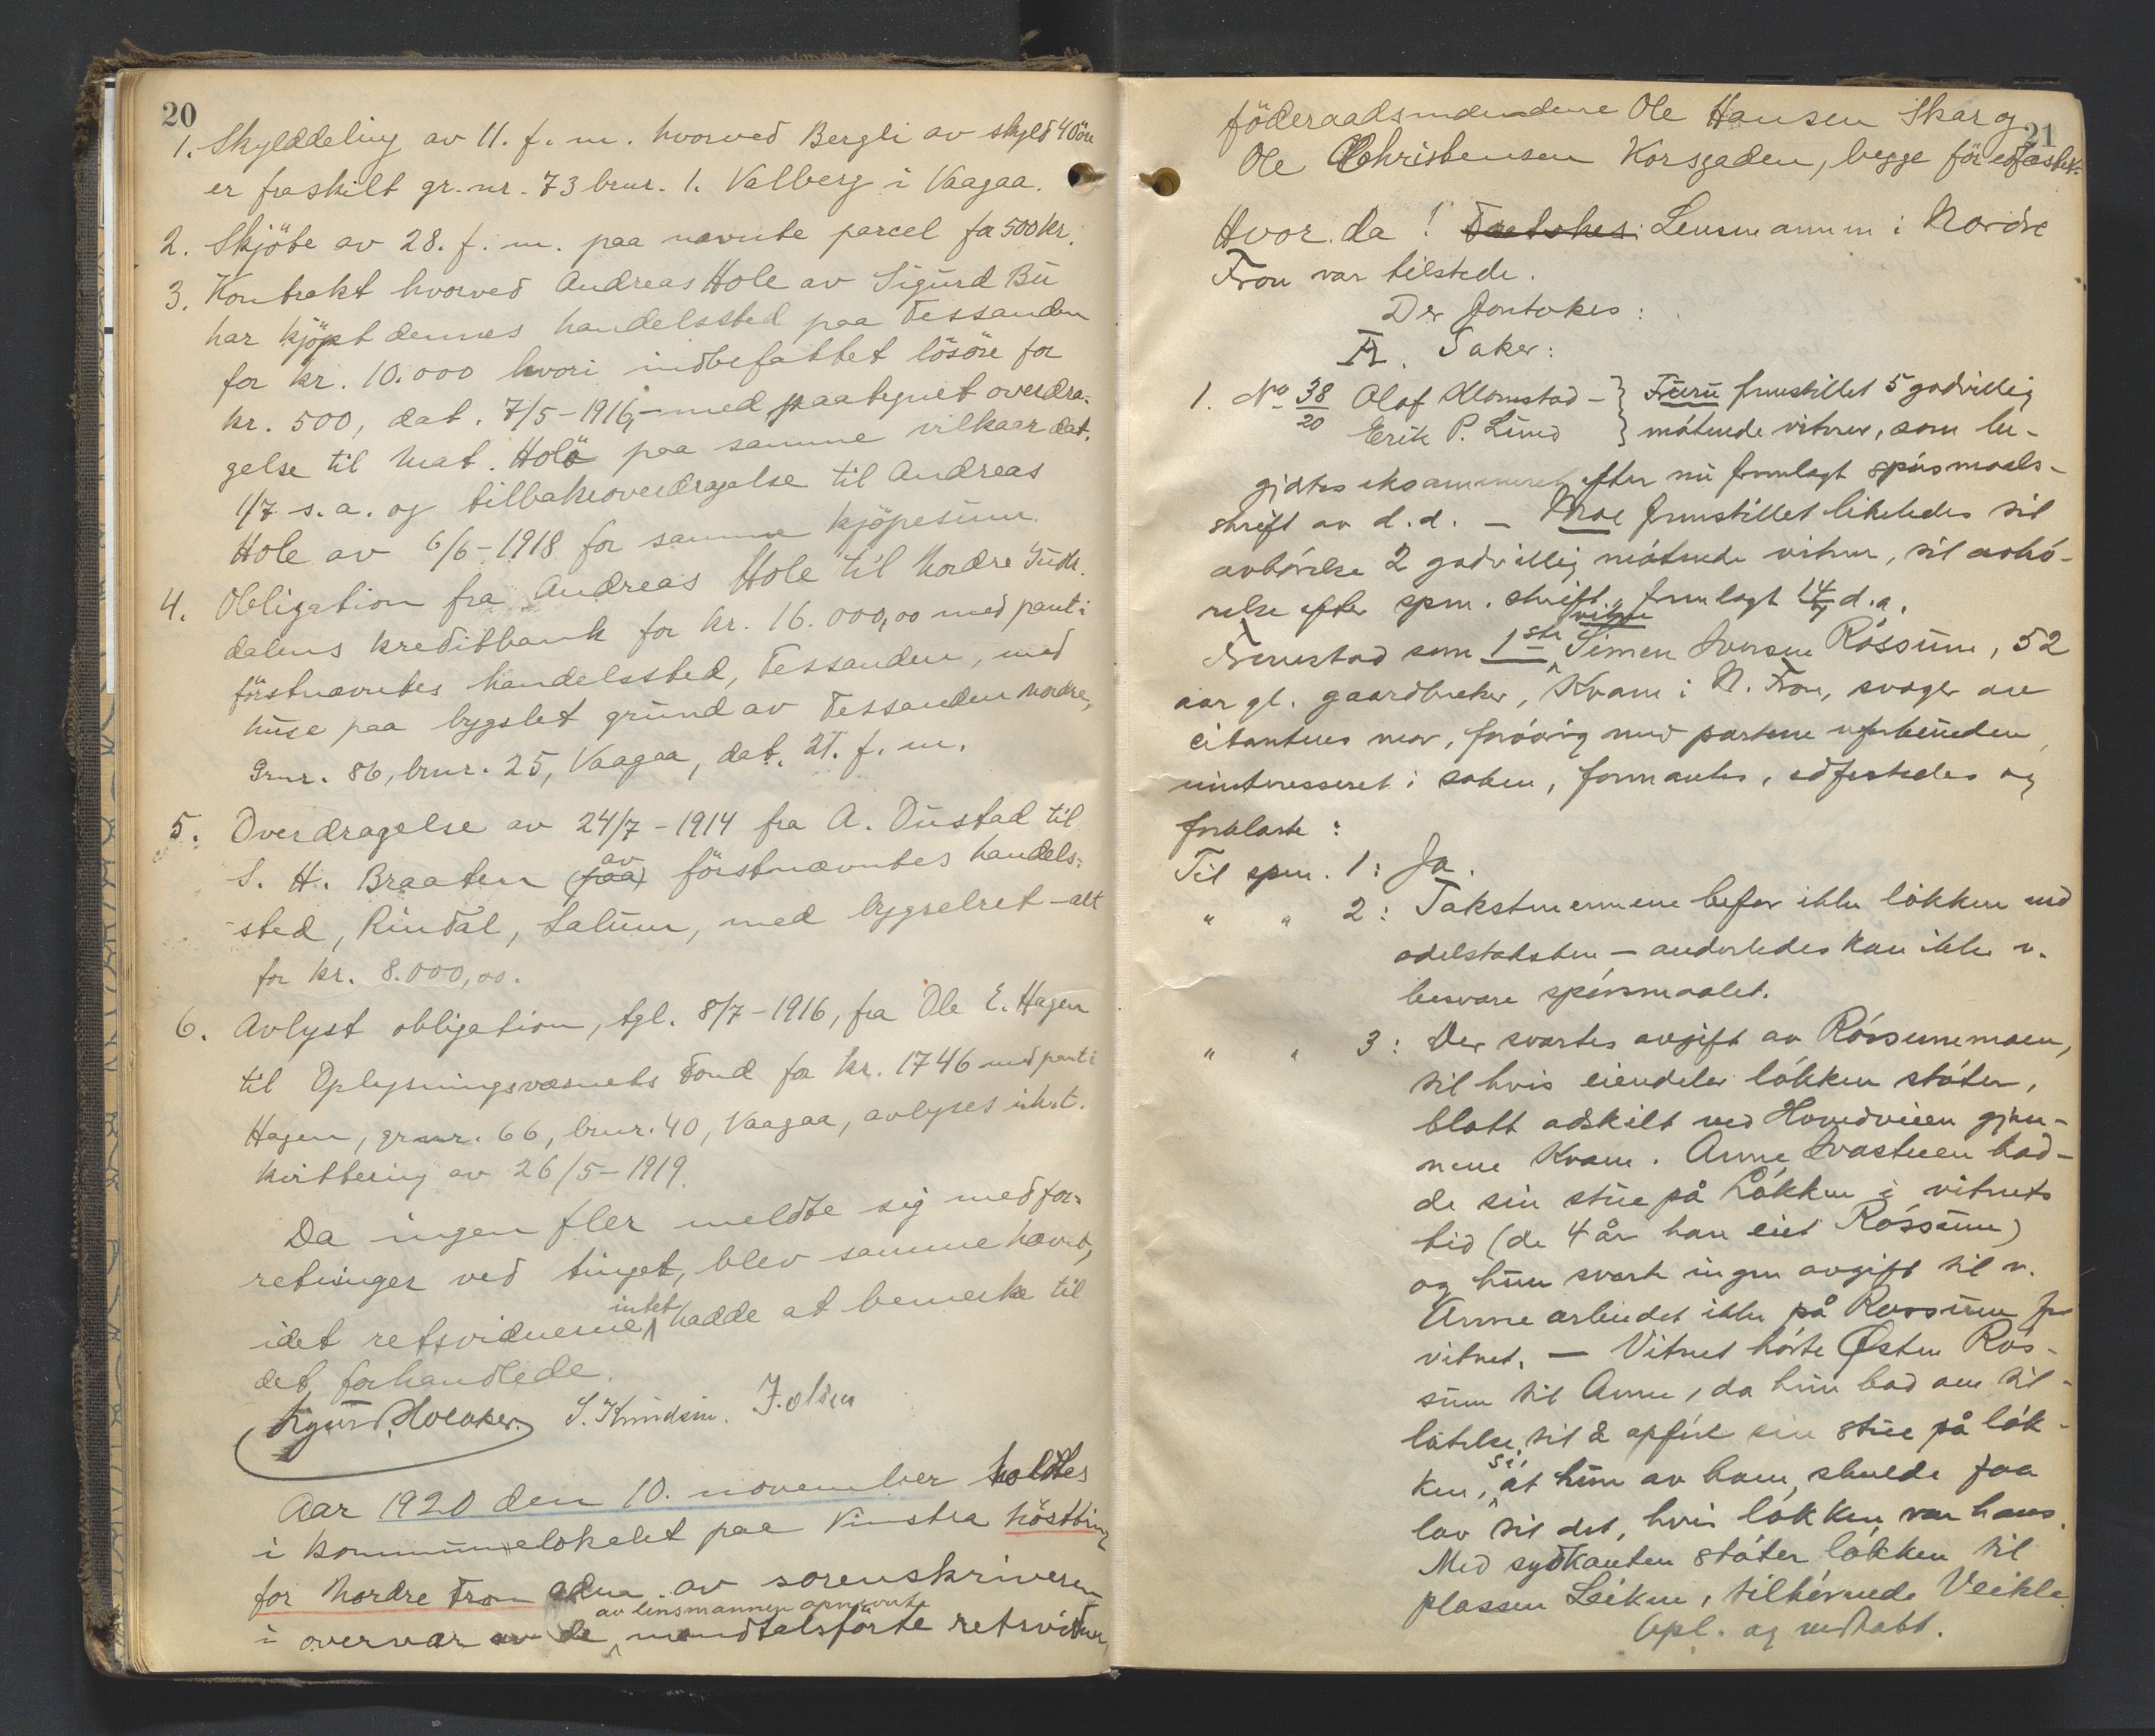 20
1. Skylddeling av 11. f. m. hvorved Bergli av skyld 40 öre
er fraskilt gr. nr. 73 brnr. 1. Valberg i Vaagaa.
2. Skjöte av 28. f. m. paa nævnte parcel for 500 kr.
3. Kontrakt hvorved Andreas Hole av Sigurd Bu
har kjöpt dennes handelssted paa Tessanden
for kr. 10.000 hvori indbefattet lösöre for
kr. 500, dat. 7/5-1916, med paategnet overdra-
gelse til Mat. Holö paa samme vilkaar dat.
1/7 s. a. og tilbakeoverdragelse til Andreas
Hole av 6/6-1918 for samme kjöpesum.
4. Obligation fra Andreas Hole til Nordre Gudb.
dalens kreditbank for kr. 16.000,00 med pant i
förstnævntes handelssted, Tessanden, med
huse paa bygslet grund av Tessanden nordre,
Grnr. 86, brnr. 25, Vaagaa, dat. 21. f. m.
5. Overdragelse av 24/7-1914 fra A. Dustad til
S. H. Braaten (paa) av förstnævntes handels-
sted, Rindal, Lalum, med bygselret - alt
for kr. 8.000,00.
6. Avlyst obligation, tgl. 8/7-1916, fra Ole E. Hagen
til Oplysningsvæsnets Fond for kr. 1746 med pant i
Hagen, grnr. 66, brnr. 40, Vaagaa, avlyses ifl.
kvittering av 26/5-1919.
Da ingen fler meldte sig med for-
retninger ved tinget, blev samme hævet,
idet retsvidnerne intet hadde at bemerke til
det forhandlede.
Sigurd Holaker. S. Knudsen. J. Olsen
Aar 1920 den 10. november holdtes
i kommunelokalet paa Vinstra höstting
for Nordre Fron adm. av sorenskriveren
i overvær av de av lensmannen opnævnte mandtalsförte retsvidner,
21
föderaadsmændene Ole Hansen Skar og
Ole Christensen Korsgaden, begge för edfæstet.
Hvor da! Foretokes: Lensmannen i Nordre
Fron var tilstede.
Der foretokes:
A. Saker:
1. No 38/20 Olaf Klomstad - } Furu fremstillet 5 godvillig
Erik P. Lund } mötende vitner, som be-
gjærtes eksaminert efter nu fremlagt spörsmaals-
skrift av d.d. - Moe fremstillet likeledes til
avhörelse 2 godvillig mötende vitner, til avhö-
relse efter spm. skrift, fremlagt 14/9 d.a.
Fremstod som 1ste vitne Simen Iversen Rössum, 52
aar gl. gaardbruker, Kvam i N. Fron, svoger av
citantens mor, forövrig med partene ubeslektet,
uinteresseret i saken, formantes, edfestedes og
forklarte:
Til spm. 1: Ja.
" " 2: Takstmennene befor ikke lökken ved
odelstaksten - anderledes kan ikke v.
besvare spörsmaalet.
" " 3: Der svartes avgift av Rössummoen,
til hvis eiendeler lökken stöter,
blott adskilt ved Hovedveien gjen-
nem Kvam. Anne Ivastuen had-
de sin stue på Lökken i vitnets
tid (de 4 år han eiet Rössum)
og hun svarte ingen avgift til v.
Anne arbeidet ikke på Rossum for
vitnet. - Vitnet hörte Østen Rös-
sum til Anne, da hun bad om til-
latelse til å opföre sin stue på lök-
ken, si, at hun av ham skulde faa
lov til det, hvis lökken var hans.
Med sydkanten stöter lökken til
plassen Leiken, tilhörende Veikle.
Opl. og vedtatt.